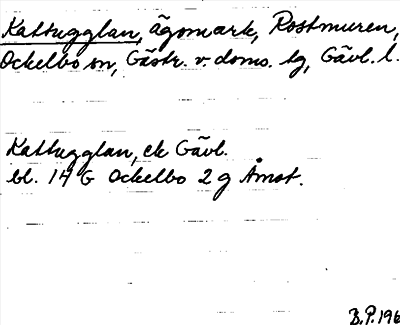 Kattugglan, ägomark, Rostmuren,
Ockelbo sn, Gästr. v. doms. lg, Gävl. l.
Kattugglan, ek Gävl.
bl. 14 G Ockelbo 2 g Åmot.
B.P. 196